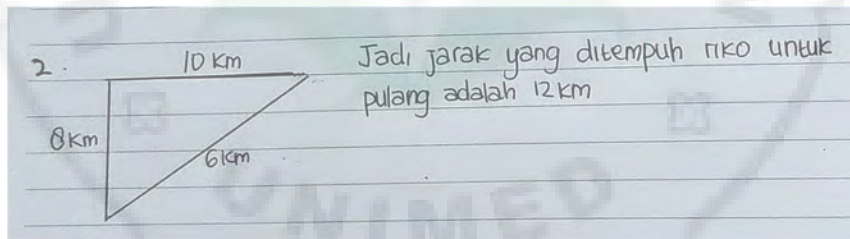 2.
10 Km
8Km
6Km
Jadi jarak yang ditempuh riko untuk
pulang adalah 12 km
UNIMED